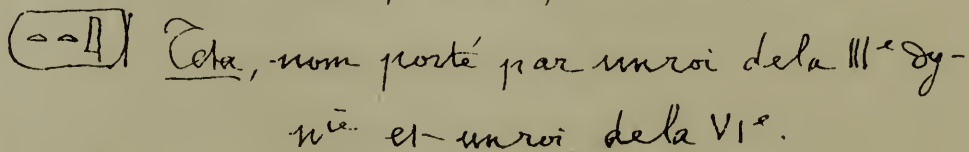 𓏏𓏏𓇋 Teta, nom porté par un roi de la IIIe dy-
nie et un roi de la VIe.